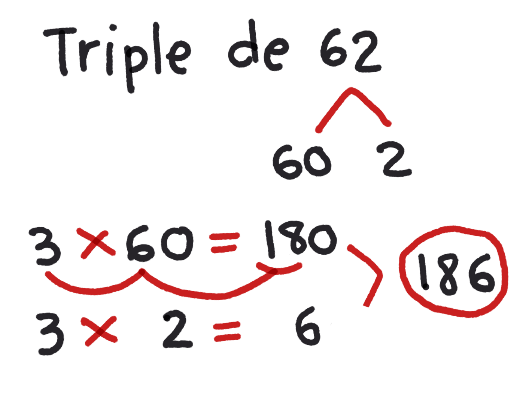 Triple de 62
60 2
3 × 60 = 180
186
3 × 2 = 6